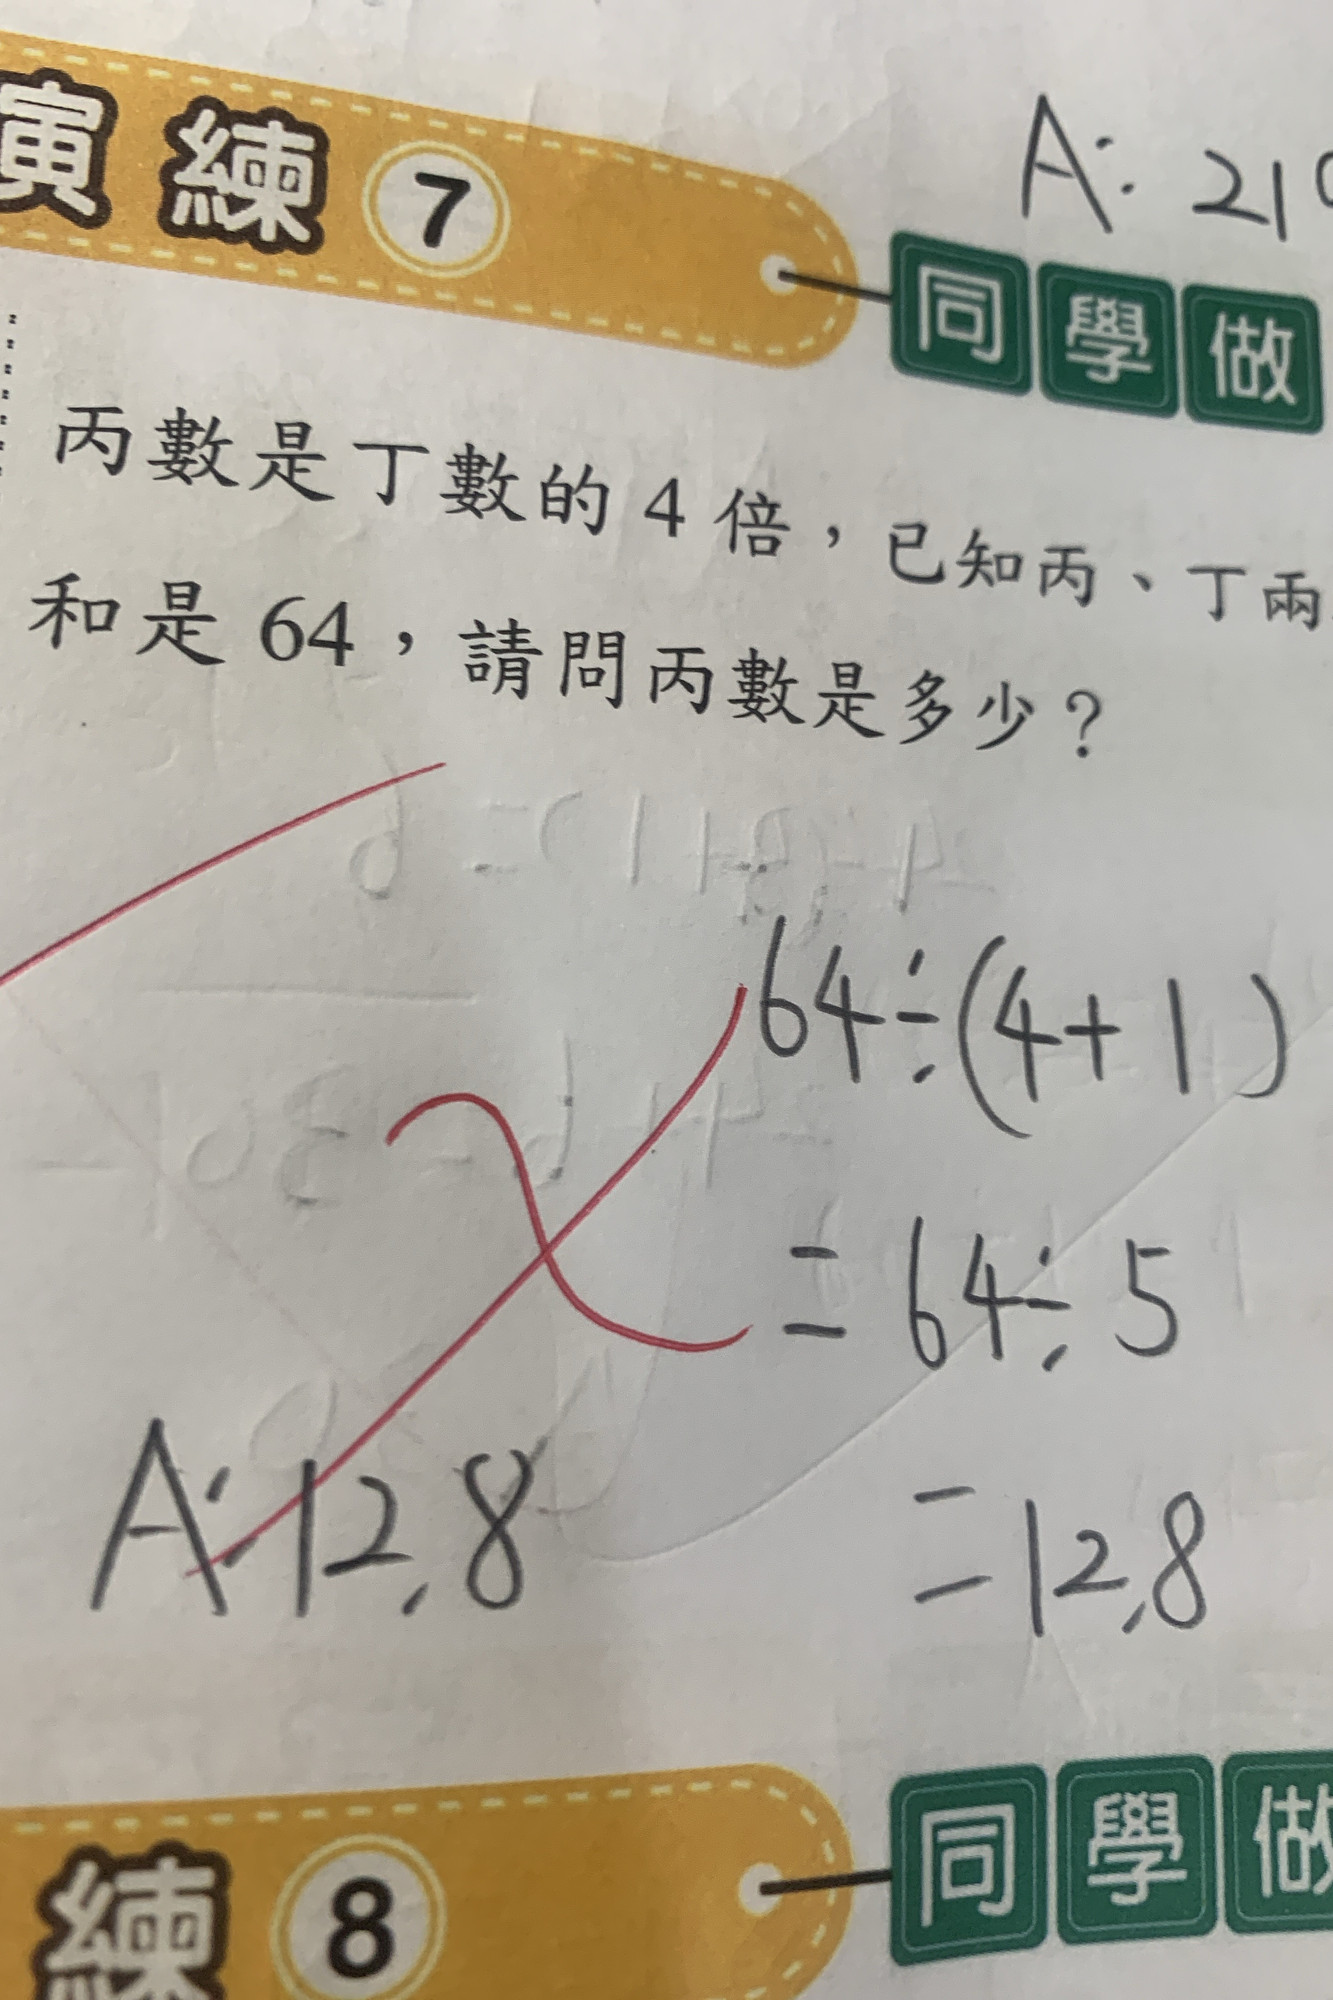 演練 7
A: 210
同學做
丙數是丁數的 4 倍，已知丙、丁兩
和是 64，請問丙數是多少？
64÷(4+1)
= 64÷5
= 12.8
A: 12.8
練 8
同學做